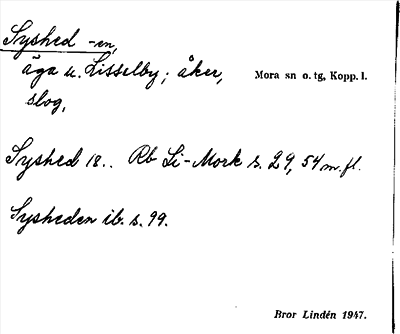 Syshed -en,
äga u. Lisselby; åker, Mora sn o. tg, Kopp. l.
slog,
Syshed 18.. Rb Li-Mork s. 29, 54 m. fl.
Sysheden ib. s. 99.
Bror Lindén 1947.